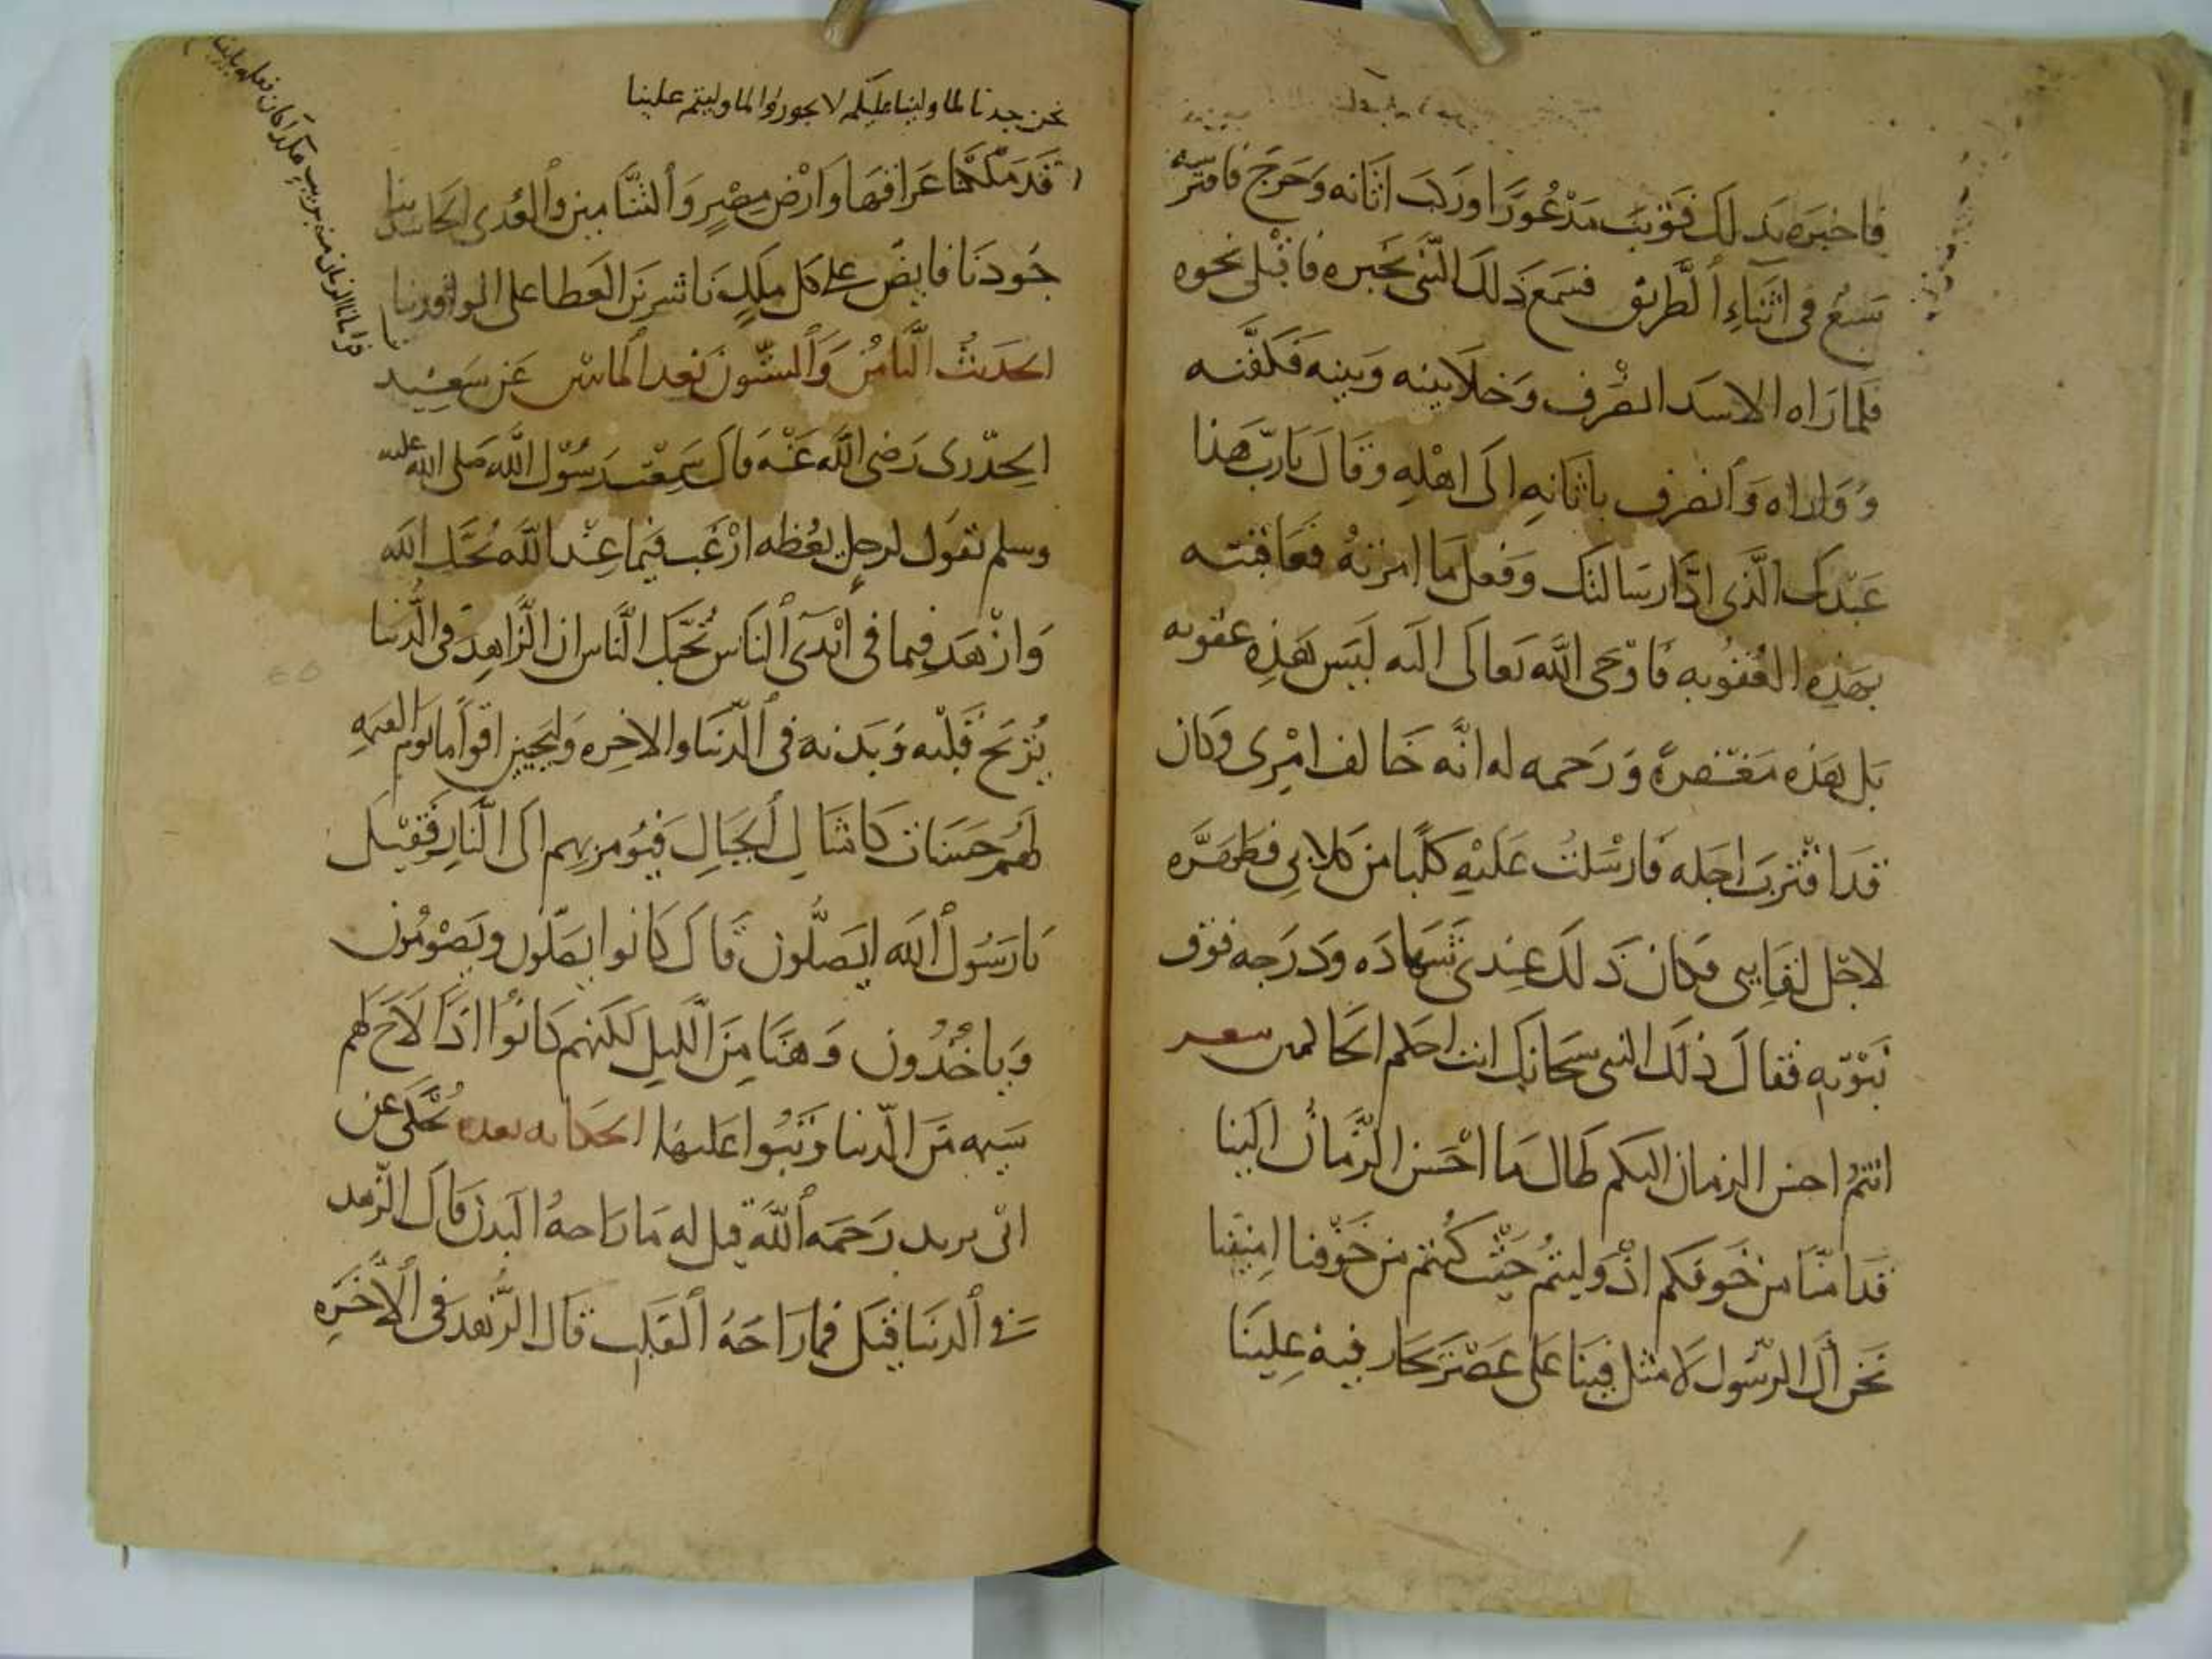 فاخبره بذلك فوثب مذعورًا وركب اتانه وخرج فافترسه
سبع في اثناء الطريق فسمع ذلك النبي بخبره فاقبل نحوه
فلما راه الاسد انصرف وخلا بينه وبينه فكفنه
وواراه وانصرف باتانه الى اهله وقال يا رب هذا
عبدك الذي ادا رسالتك وفعل ما امرته فعاقبته
بهذه العقوبه فاوحى الله تعالى اليه ليس هذه عقوبه
بل هذه مغفرة ورحمه له انه خالف امري وكان
قد اقترب اجله فارسلت عليه كلبا من كلابي فطهره
لاجل لقايى فكان ذلك عندي شهاده ودرجه فوق
نبوته فقال ذلك النبي سبحانك انت احكم الحاكمين شعر
انتم احسن الزمان اليكم طال ما احسن الزمان الينا
قد امنا من خوفكم اذ وليتم حيث كنتم من خوفنا امنينا
نحن آل الرسول لا مثل فينا على عصر جار فيه علينا
نحن جدنا لما ولينا عليكم لا تجوروا لما وليتم علينا
قد ملكنا عراقها وارض مصر والشامين والعدى الحاسدينا
جودنا فايض على كل ملك ناشرين العطا على الوافدينا
الحديث الثامن والستون بعد المايتين عن سعيد
الخدري رضي الله عنه قال سمعت رسول الله صلى الله عليه
وسلم يقول لرجل يعظه ارغب فيما عند الله يحبك الله
وازهد فيما في ايدي الناس يحبك الناس ان الزاهد في الدنيا
يريح قلبه وبدنه في الدنيا والاخره وليجيين اقواما يوم القيمه
لهم حسنات كامثال الجبال فيومر بهم الى النار فقيل
يا رسول الله ايصلون قال كانوا يصلون ويصومون
وياخذون وهنا من الليل لكنهم كانوا اذا لاح لهم
شيء من الدنيا وثبوا عليها الحكايه بعده يحكى عن
ابي يزيد رحمه الله قيل له ما راحة البدن قال الزهد
في الدنيا قيل فما راحة القلب قال الزهد في الآخره